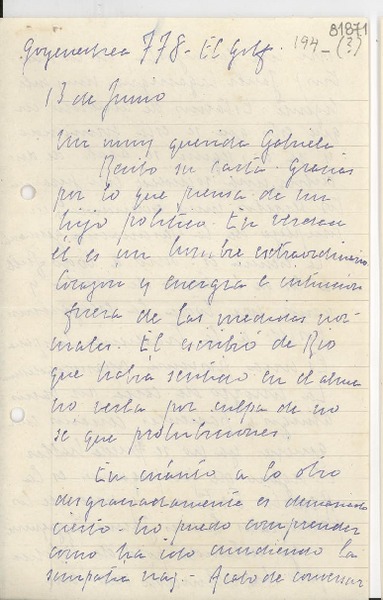 81871
Goyenechea 778 - El Golf. 194_(?)
13 de Junio
Mi muy querida Gabriela
Recibo su carta. Gracias
por lo que piensa de mi
hijo político. En verdad
él es un hombre extraordinario
Corazón y energía e intuición
fuera de las medidas nor
males. El escribió de Rio
que había sentido en el alma
no verla por culpa de no
se que prohibiciones.
En cuánto a lo otro
desgraciadamente es demasiado
cierto - No puedo comprender
como ha ido cundiendo la
simpatia naz. - Acabo de conversar